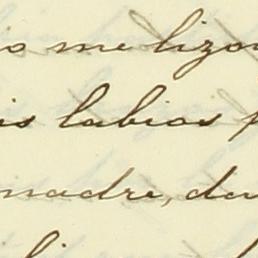 io me lizon
is labios p
madre, de